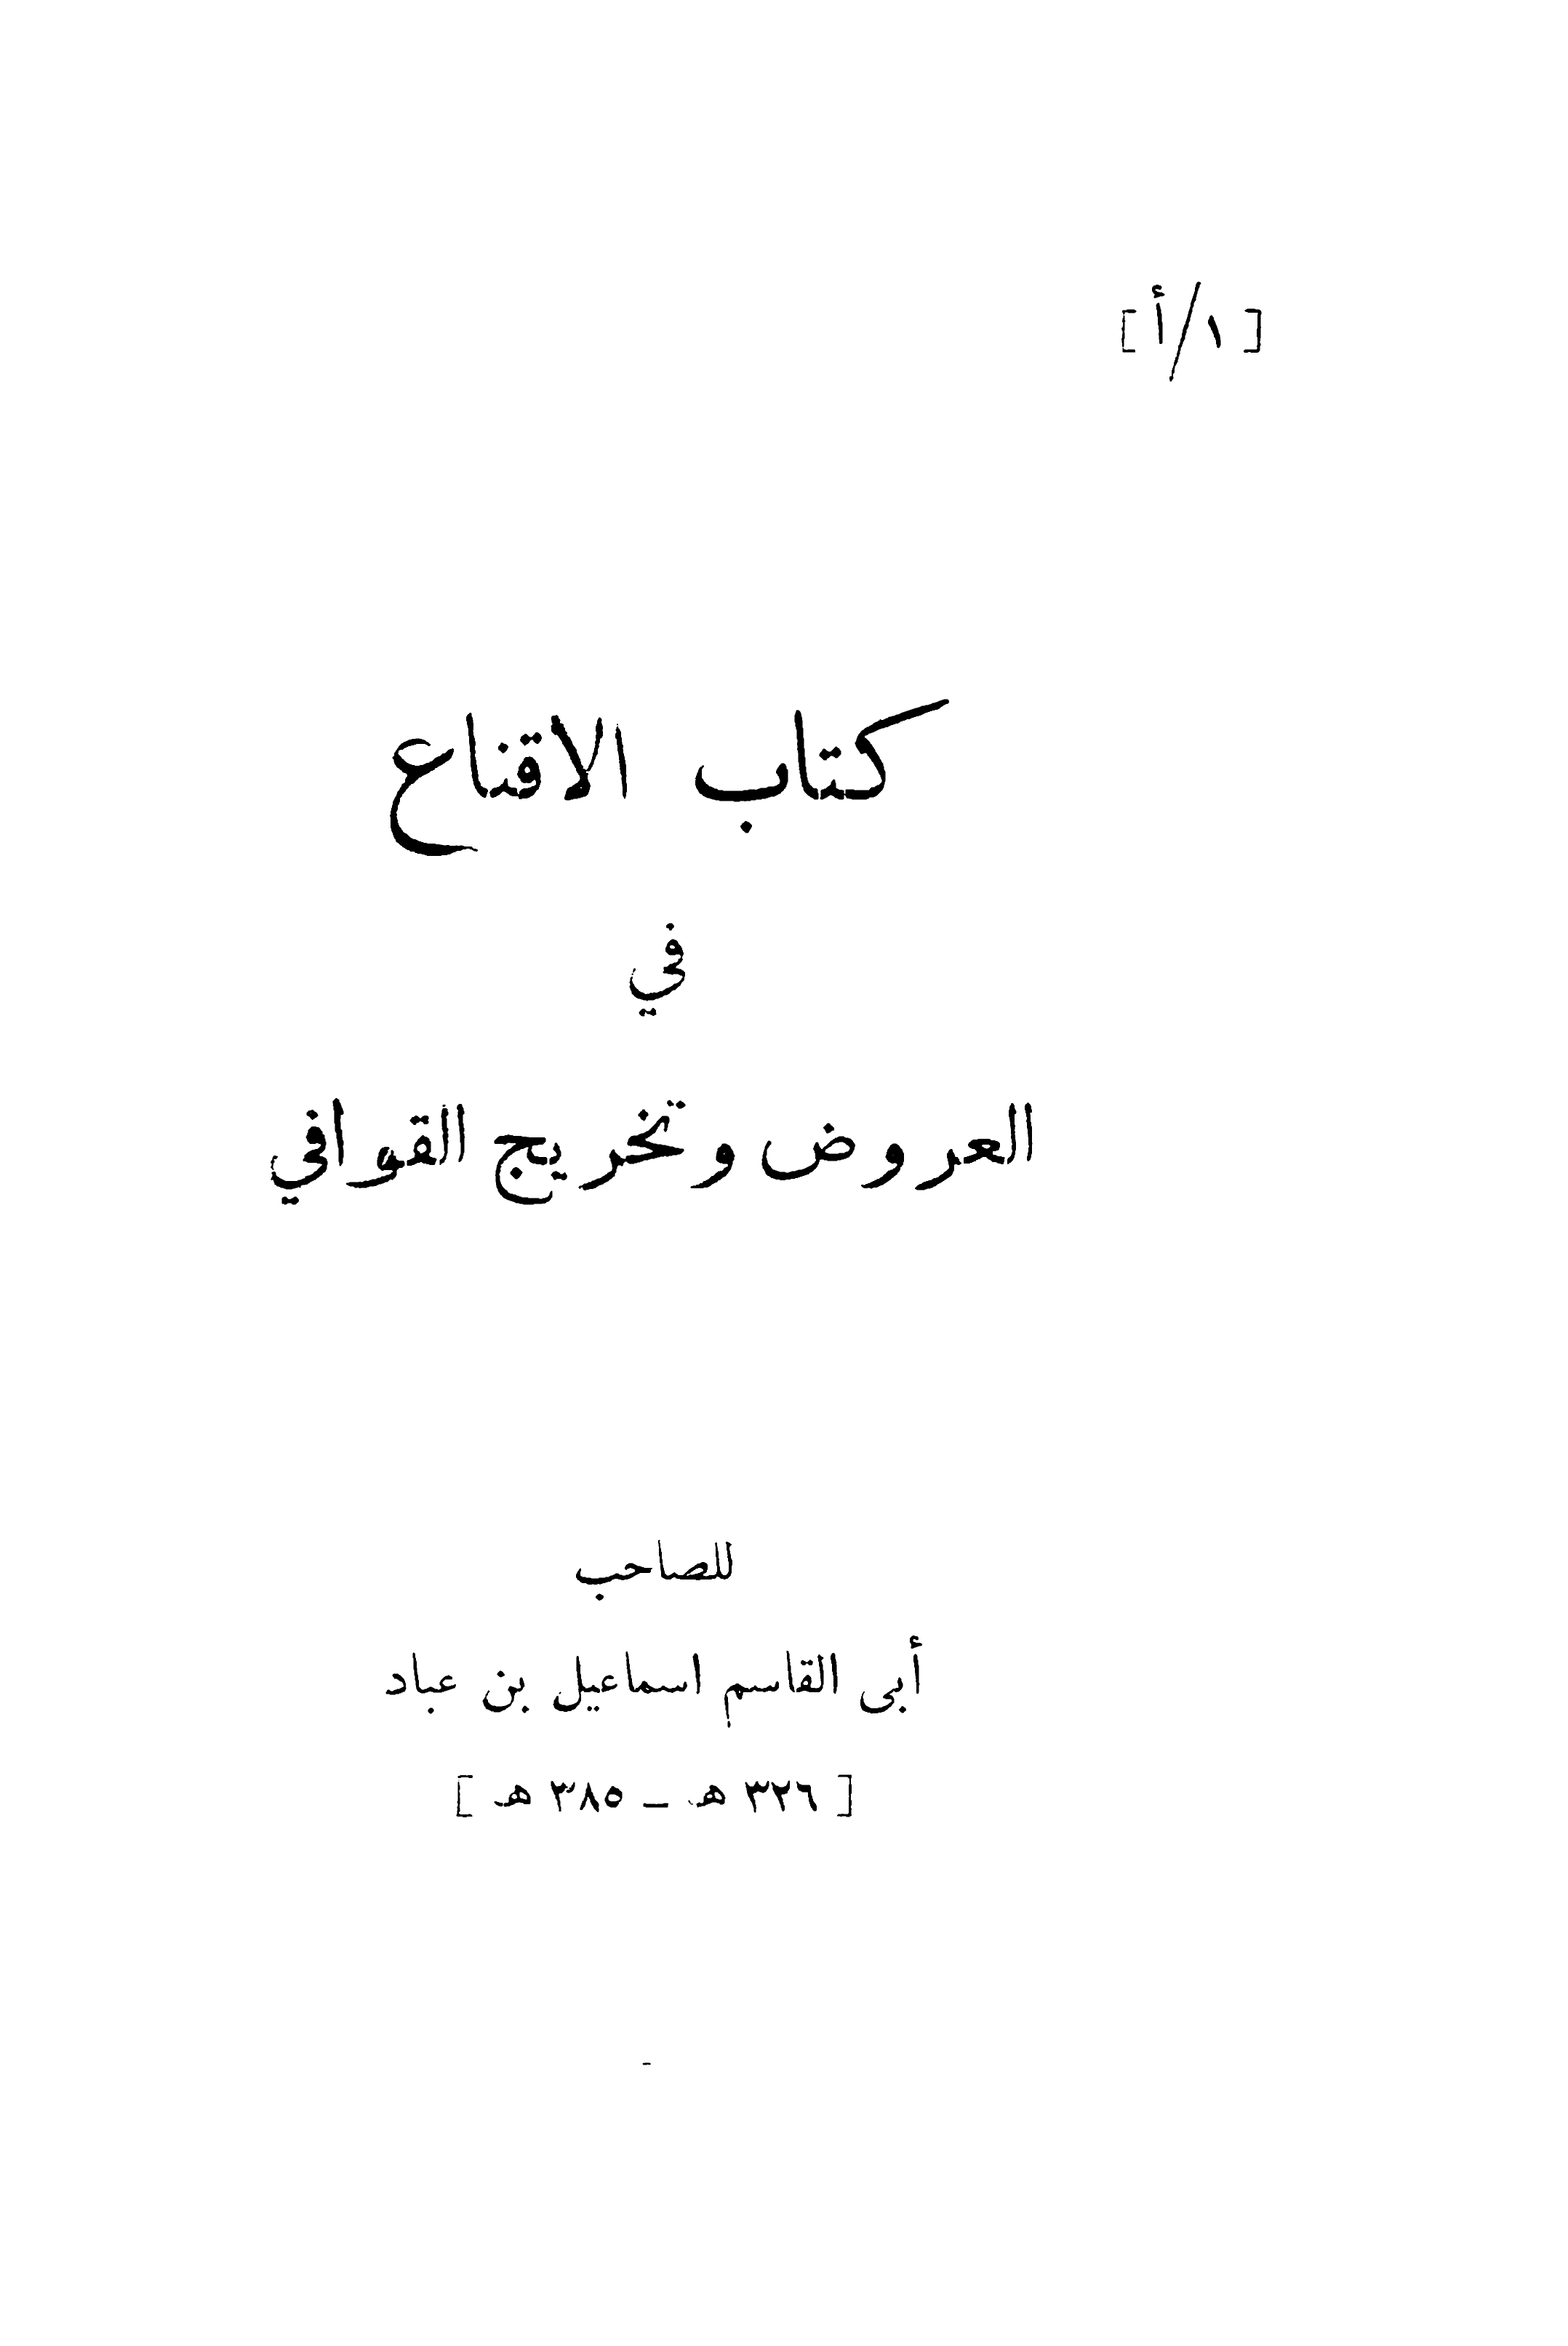 [ ١/أ ]
كتاب الاقناع
في
العروض وتخريج القوافي
للصاحب
أبي القاسم اسماعيل بن عباد
[ ٣٢٦ هـ ــ ٣٨٥ هـ ]